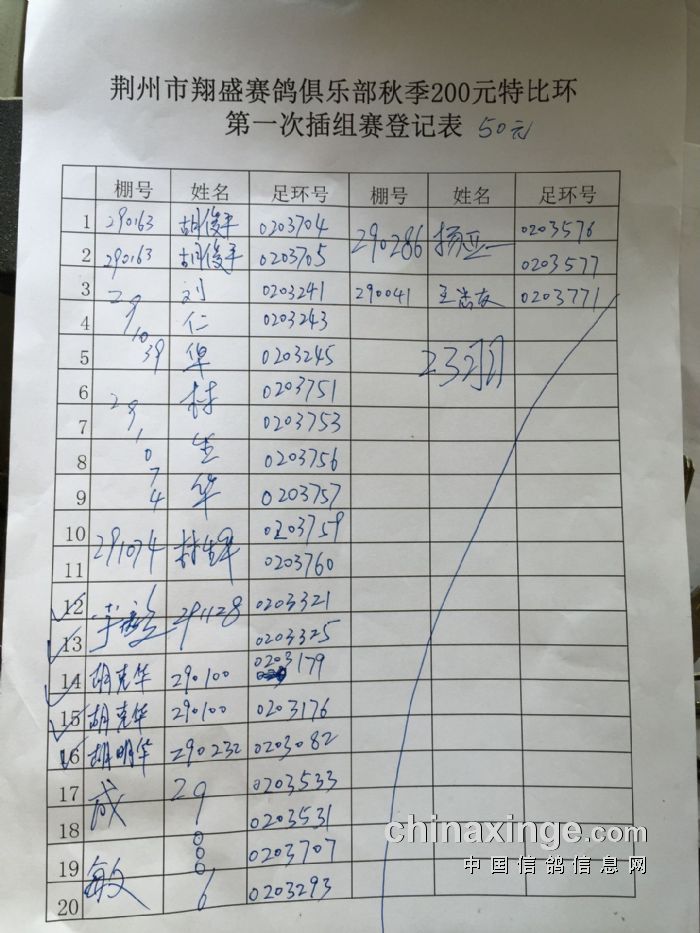 荆州市翔盛赛鸽俱乐部秋季200元特比环
第一次插组赛登记表 50元
棚号 姓名 足环号 棚号 姓名 足环号
1 290163 胡俊平 0203704 290286 杨亚一 0203576
2 290163 胡俊平 0203705 0203577
3 291039 刘仁华 0203241 290041 王志友 0203771
4 0203243
5 0203245 23羽
6 291074 林生华 0203751
7 0203753
8 0203756
9 0203757
10 291074 林生华 0203759
11 0203760
12 291128 0203321
13 0203325
14 胡克华 290100 0203179
15 胡克华 290100 0203176
16 胡明华 290232 0203082
17 成敏 290006 0203533
18 0203531
19 0203707
20 0203293
chinaxinge.com
中国信鸽信息网